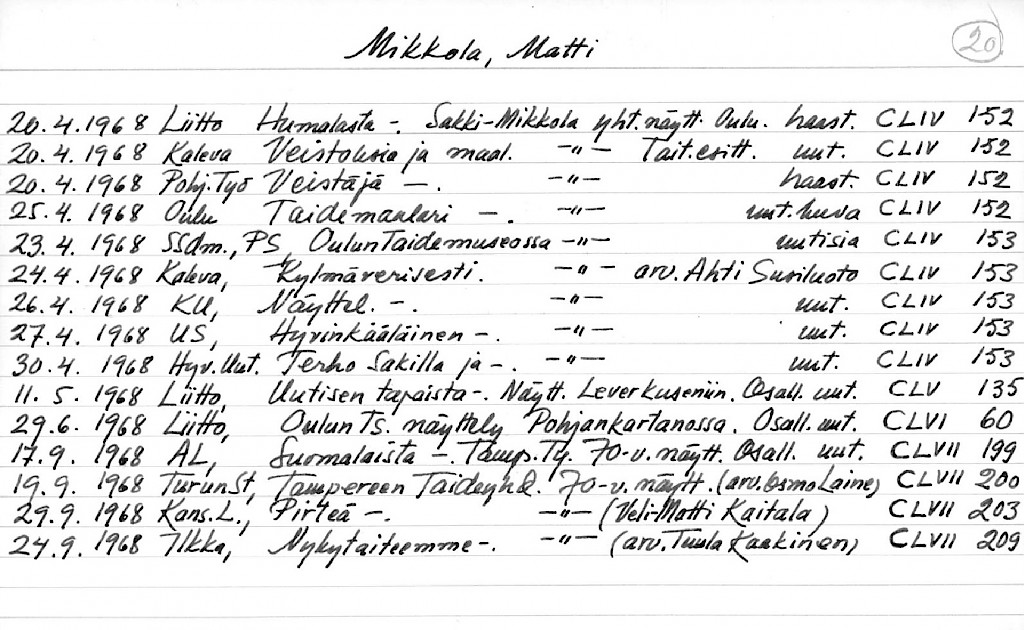 Mikkola, Matti
20
20.4.1968 Liitto Humalasta -. Sakki-Mikkola yht.näytt. Oulu. haast. CLIV 152
20.4.1968 Kaleva Veistoksia ja maal. -"- Tait.esitt. uut. CLIV 152
20.4.1968 Pohj.Työ Veistäjä -. -"- haast. CLIV 152
25.4.1968 Oulu Taidemaalari -. -"- uut.kuva CLIV 152
23.4.1968 SSdm., PS, Oulun Taidemuseossa -"- uutisia CLIV 153
24.4.1968 Kaleva, Kylmäverisesti. -"- arv. Ahti Susiluoto CLIV 153
26.4.1968 KU, Näyttel. -. -"- uut. CLIV 153
27.4.1968 US, Hyvinkääläinen -. -"- uut. CLIV 153
30.4.1968 Hyv.Uut. Terho Sakilla ja -. -"- uut. CLIV 153
11.5.1968 Liitto, Uutisen tapaista -. Näytt. Leverkuseniin. Osall. uut. CLV 135
29.6.1968 Liitto, Oulun Ts. näyttely Pohjankartanossa. Osall. uut. CLVI 60
17.9.1968 AL, Suomalaista -. Tamp.Ty. 70-v. näytt. Osall. uut. CLVII 199
19.9.1968 TurunSt, Tampereen Taideyhd. 70-v. näytt. (arv. Osmo Laine) CLVII 200
29.9.1968 Kans.L., Pirteä -. -"- (Veli-Matti Kaitala) CLVII 203
24.9.1968 Ilkka, Nykytaiteemme -. -"- (arv. Tuula Kaakinen) CLVII 209